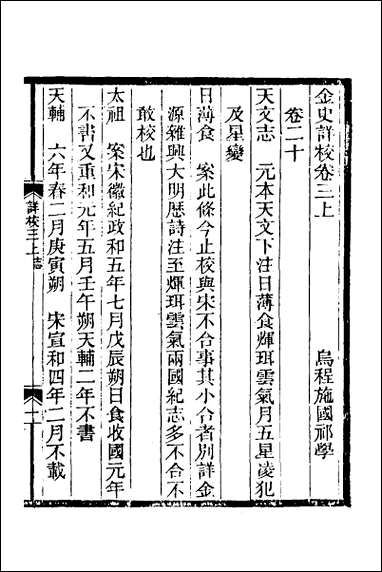 金史詳校卷三上　烏程施國祁學
卷二十
天文志　元本天文下注日薄食煇珥雲氣月五星凌犯
及星變
日薄食　案此條今止校與宋不合事其小合者別詳金
源雜興大明歷詩注至煇珥雲氣兩國紀志多不合不
敢校也
太祖　案宋徽紀政和五年七月戊辰朔日食收國元年
不書又重和元年五月壬午朔天輔二年不書
天輔　六年春二月庚寅朔　宋宣和四年二月不載
詳校三上 志
一